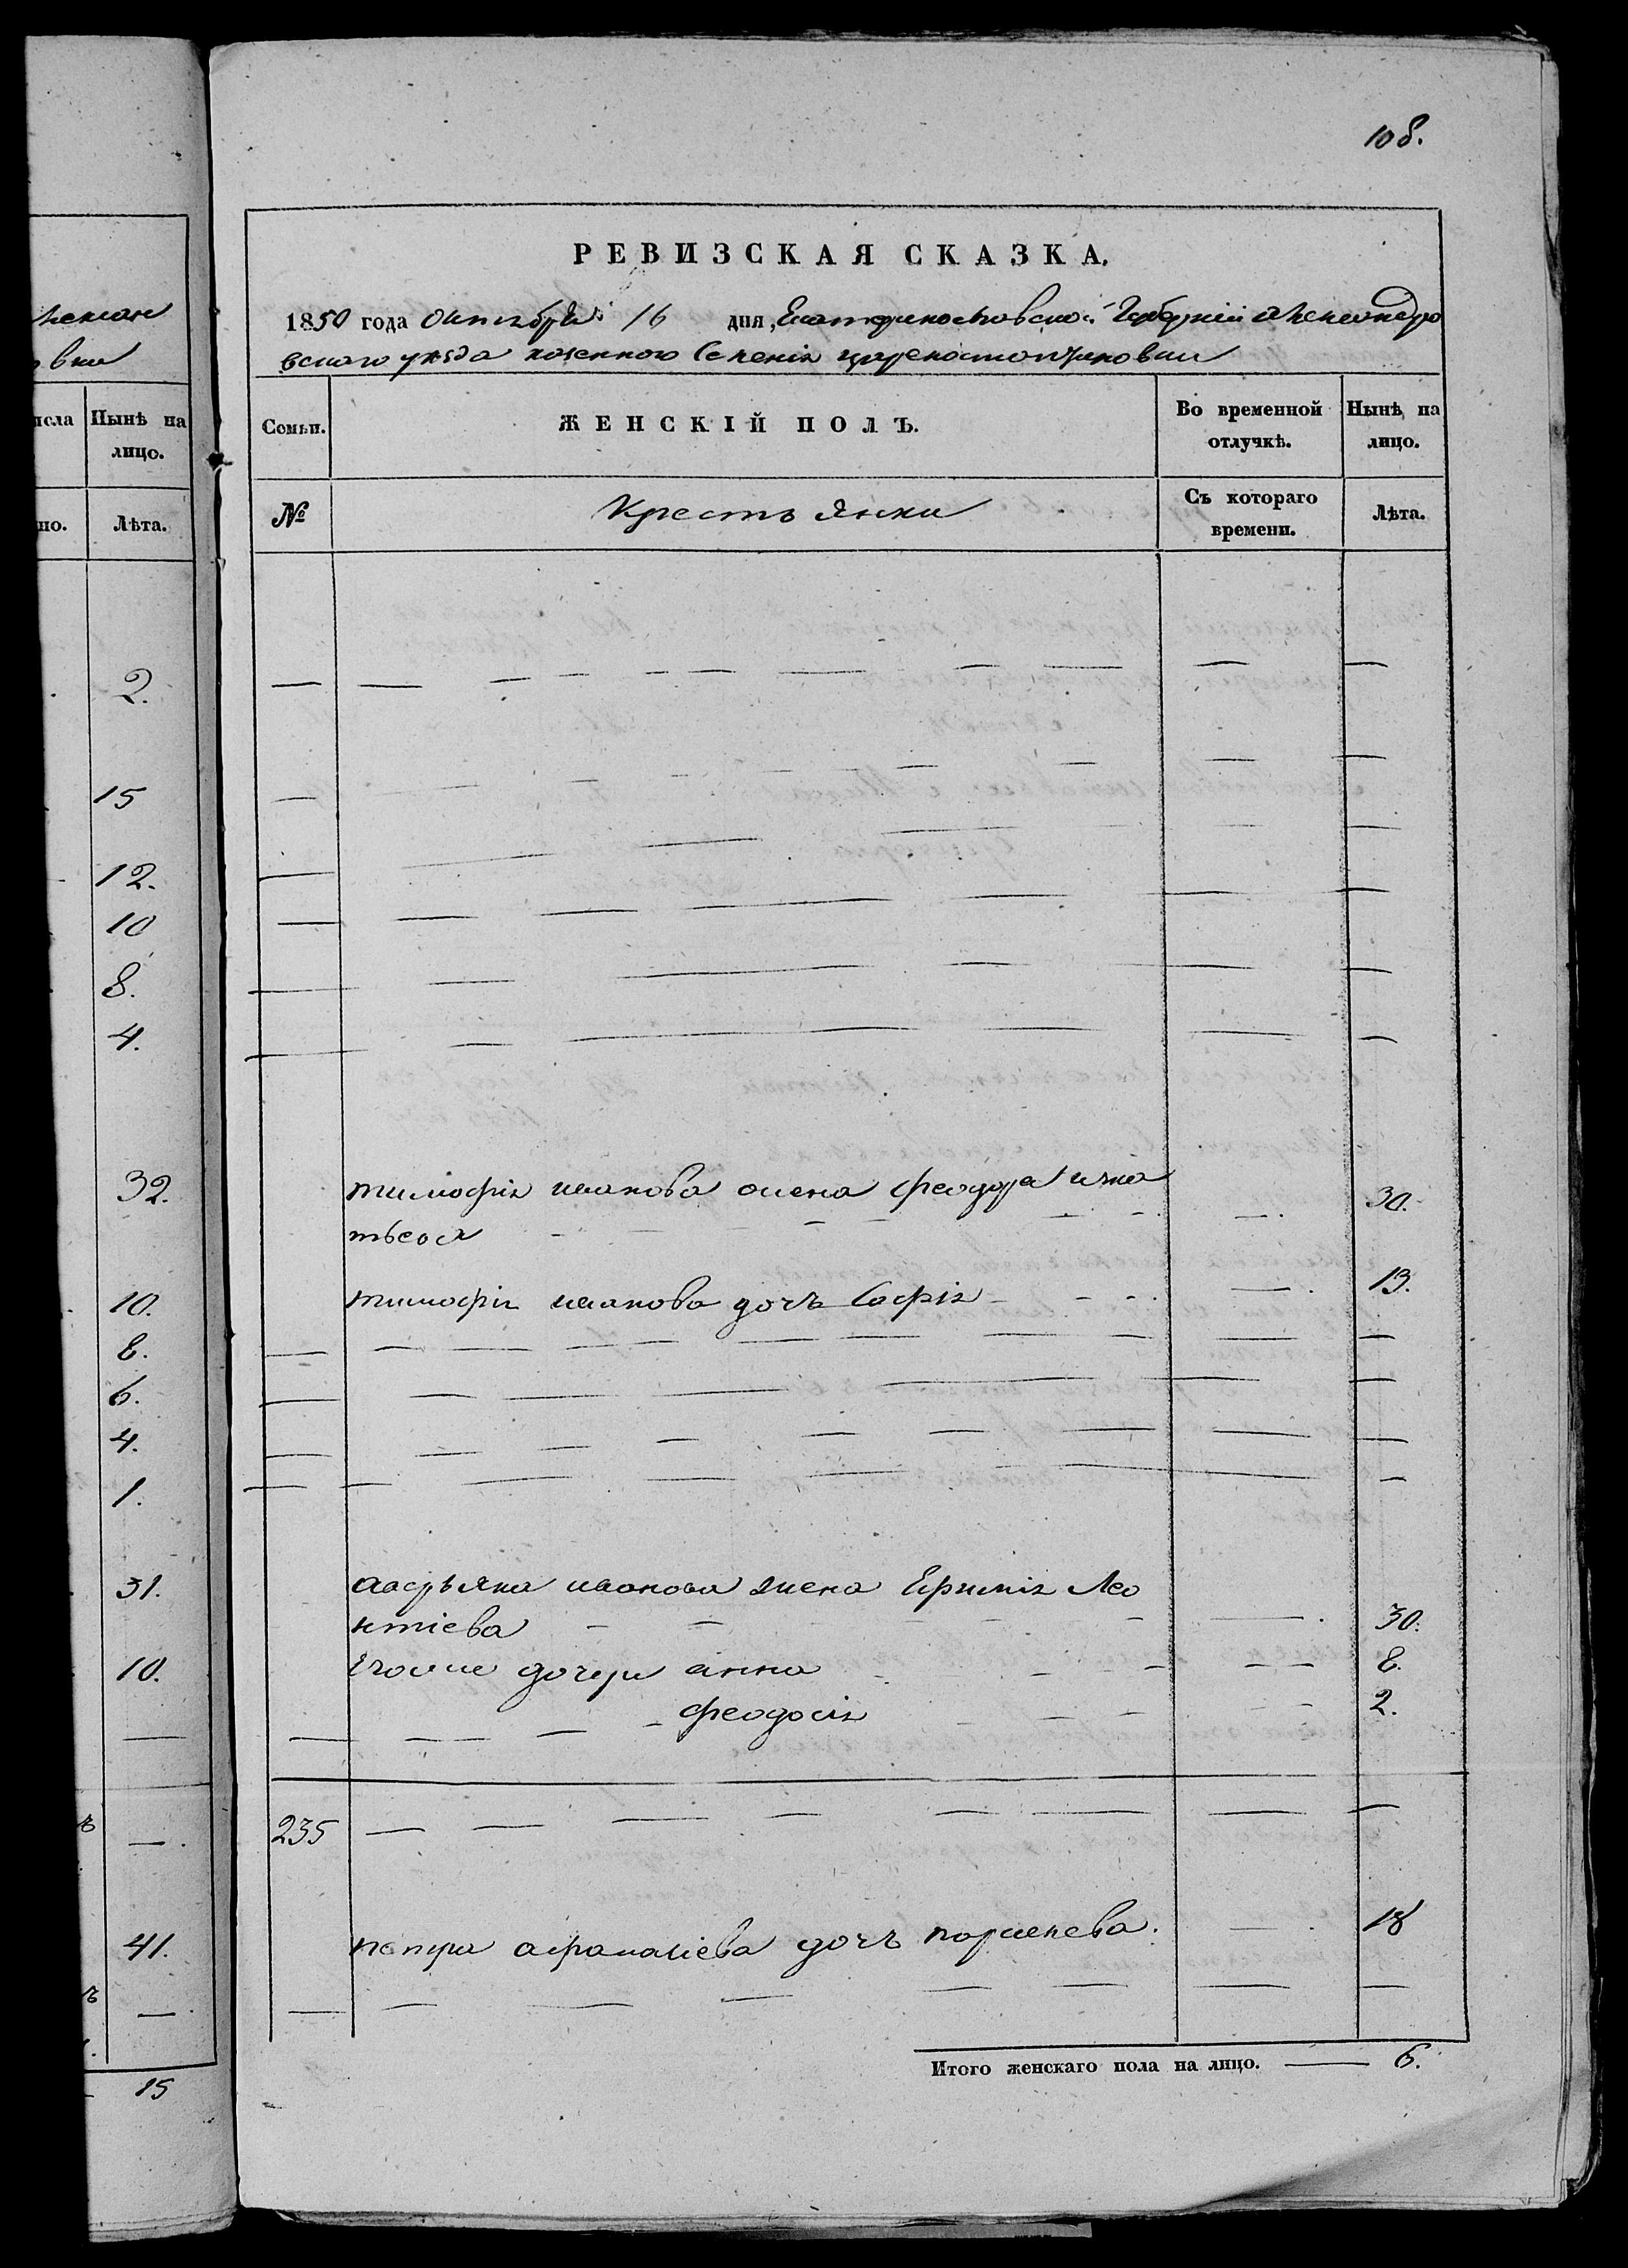 108.
РЕВИЗСКАЯ СКАЗКА.
1850 года Октября 16 дня, Екатеринославской Губерніи Александро
вскаго уезда казенного Селенія
Нынѣ на лицо.
Лѣта.
Семьи.
ЖЕНСКІЙ ПОЛЪ.
Во временной отлучкѣ.
Нынѣ на лицо.
№
Крестьянки
Съ котораго времени.
Лѣта.
2.
15
12.
10
8.
4.
32.
тимофея иванова жена феодора игна 30.
тьева
10.
тимофея иванова дочь Софія 13.
8.
6.
4.
1.
31.
андрьяна иванова жена Ефимія Лео
нтіева 30.
10.
Егоже дочери анна 8.
феодосія 2.
235
41.
петра афанасіева дочь 18
15
Итого женскаго пола на лицо. 6.